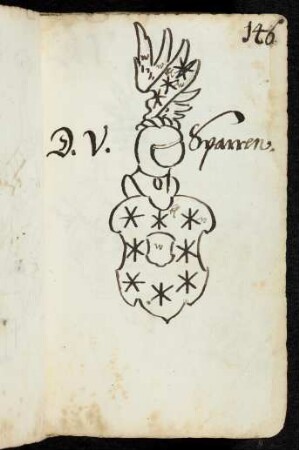 146
D. V. Sparren.
w
w